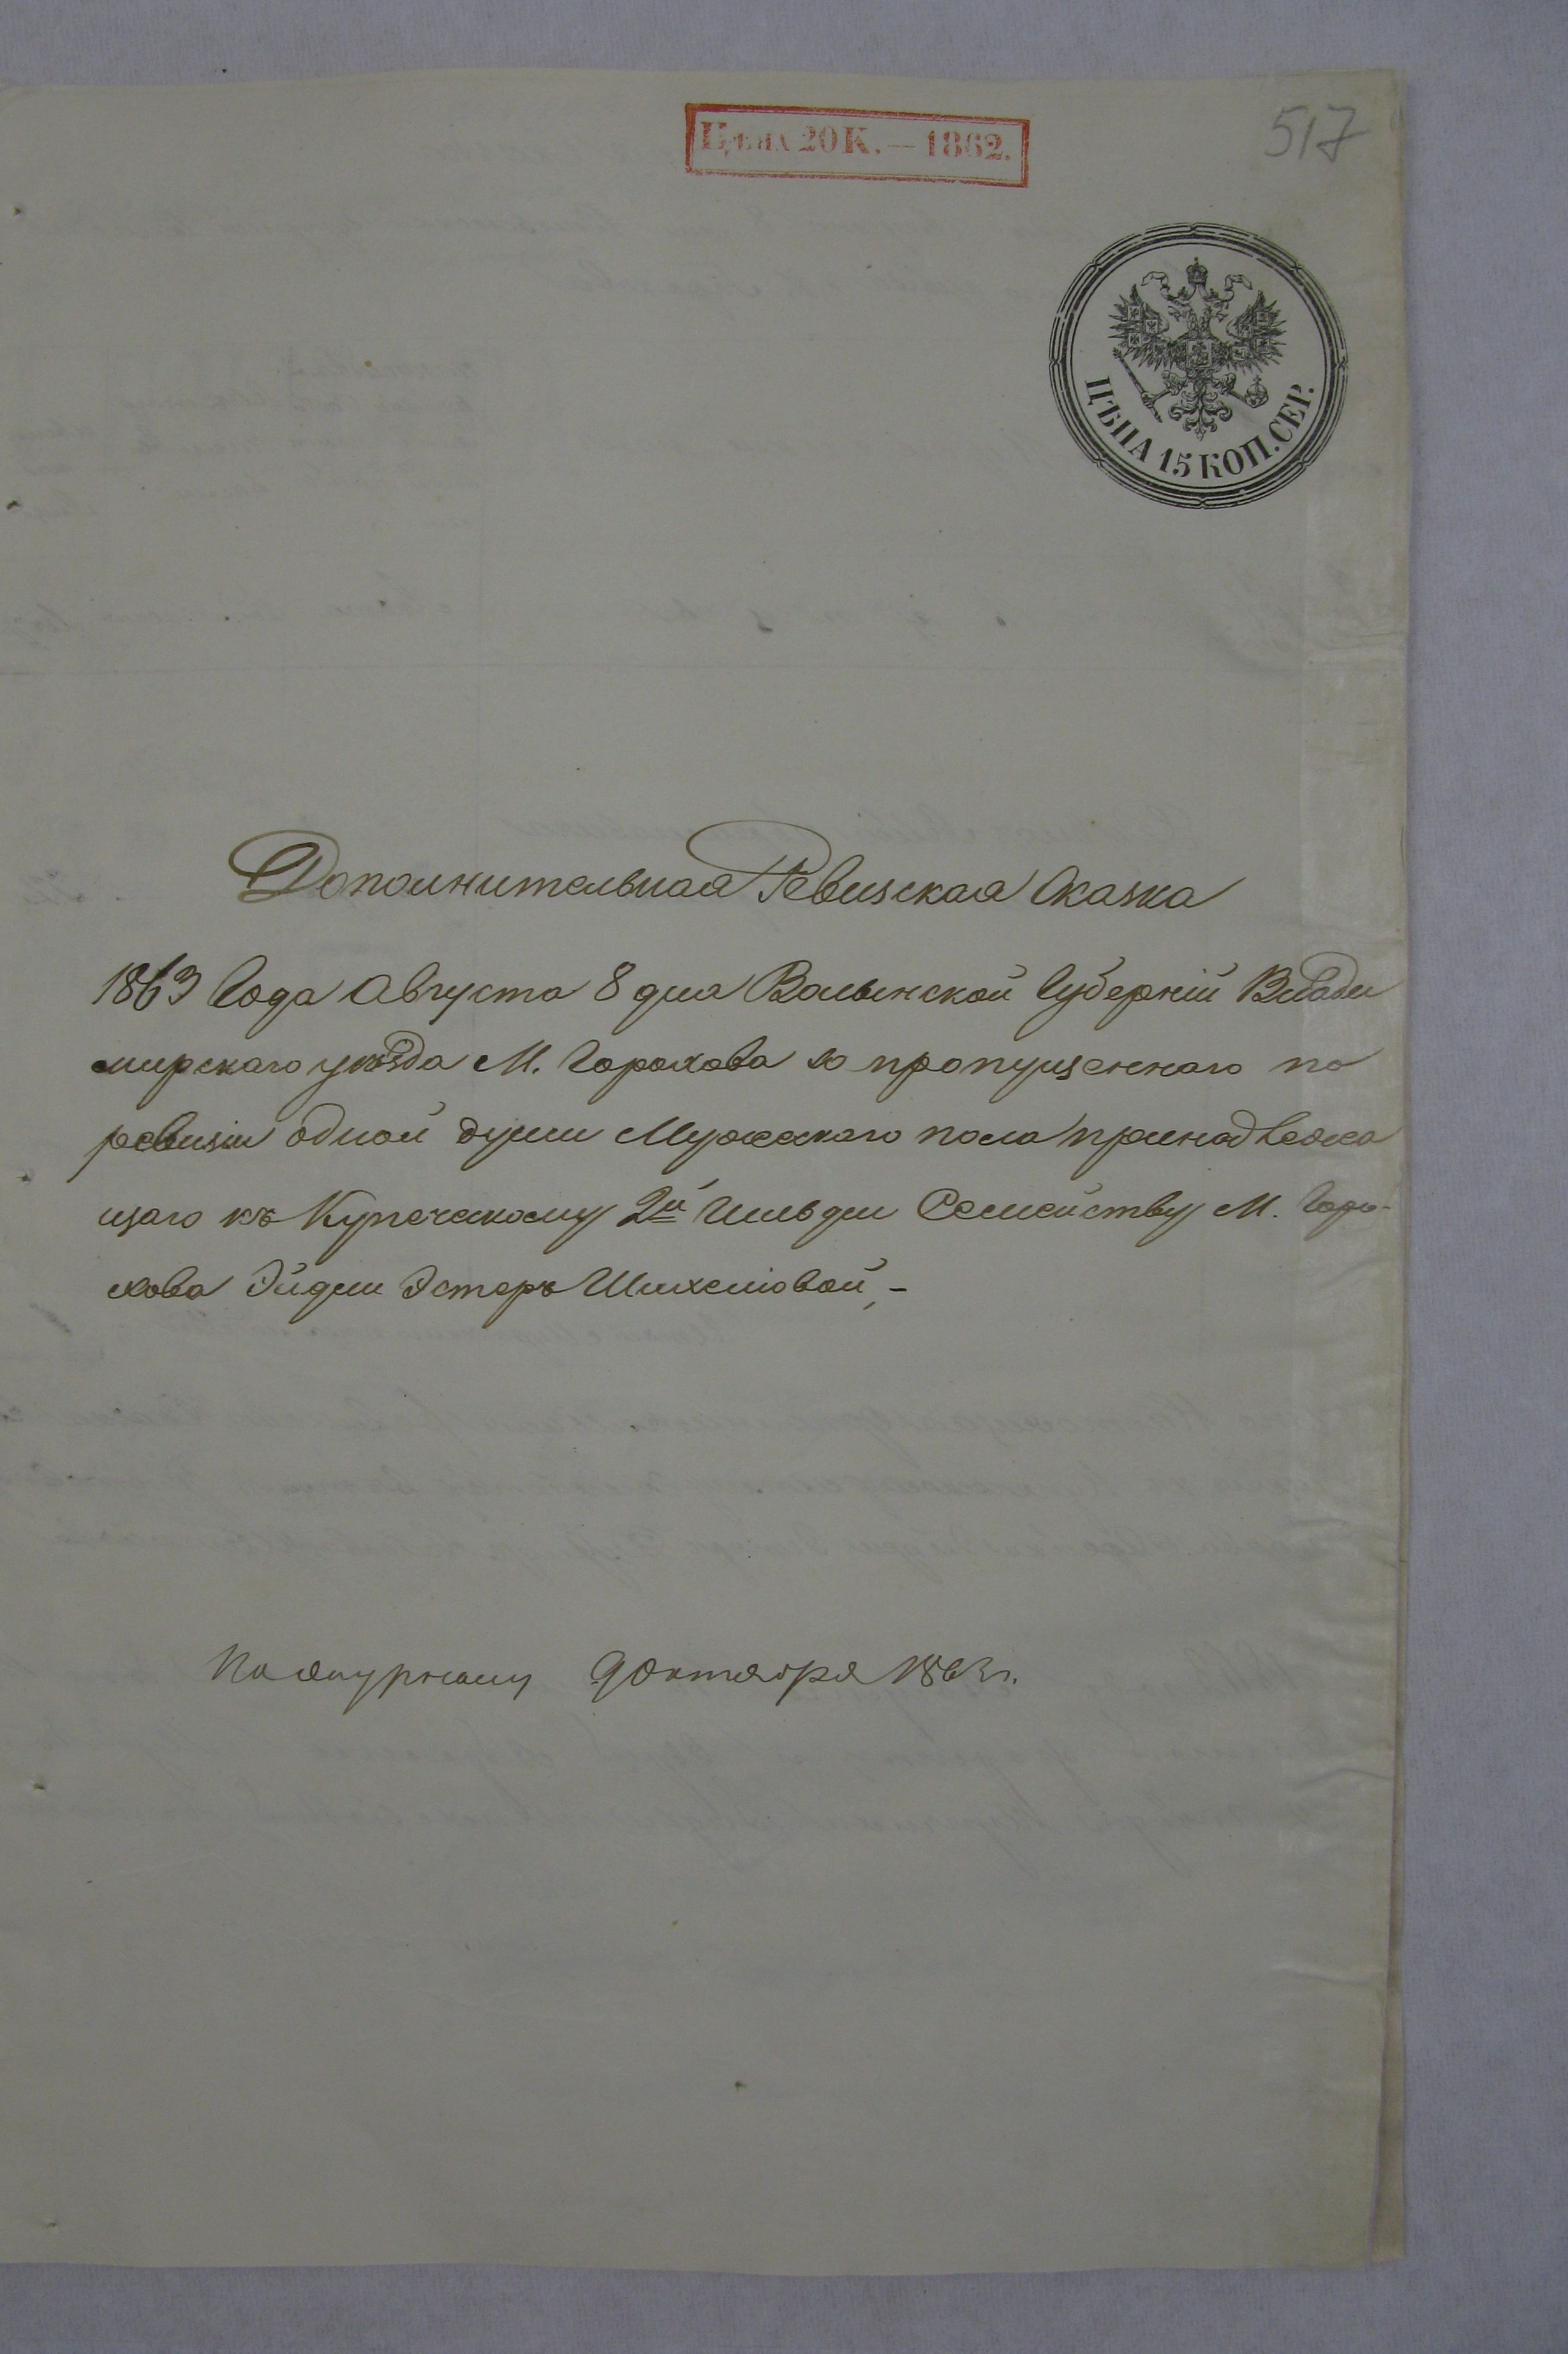 Цѣна 20 К. — 1862.
517
ЦѢНА 15 КОП. СЕР.
Дополнительная Ревизская Сказка
1863 Года Августа 8 дня Волынской Губерніи Влади
мирскаго уѣзда М. Горохова о пропущеннаго по
ревизіи одной души Мужескаго пола принадлежа
щаго къ Купеческому 2й Гильдіи Семейству М. Горо-
хова Эйдли Эстеръ Шихеловой, -
9 Октября 1863 г.